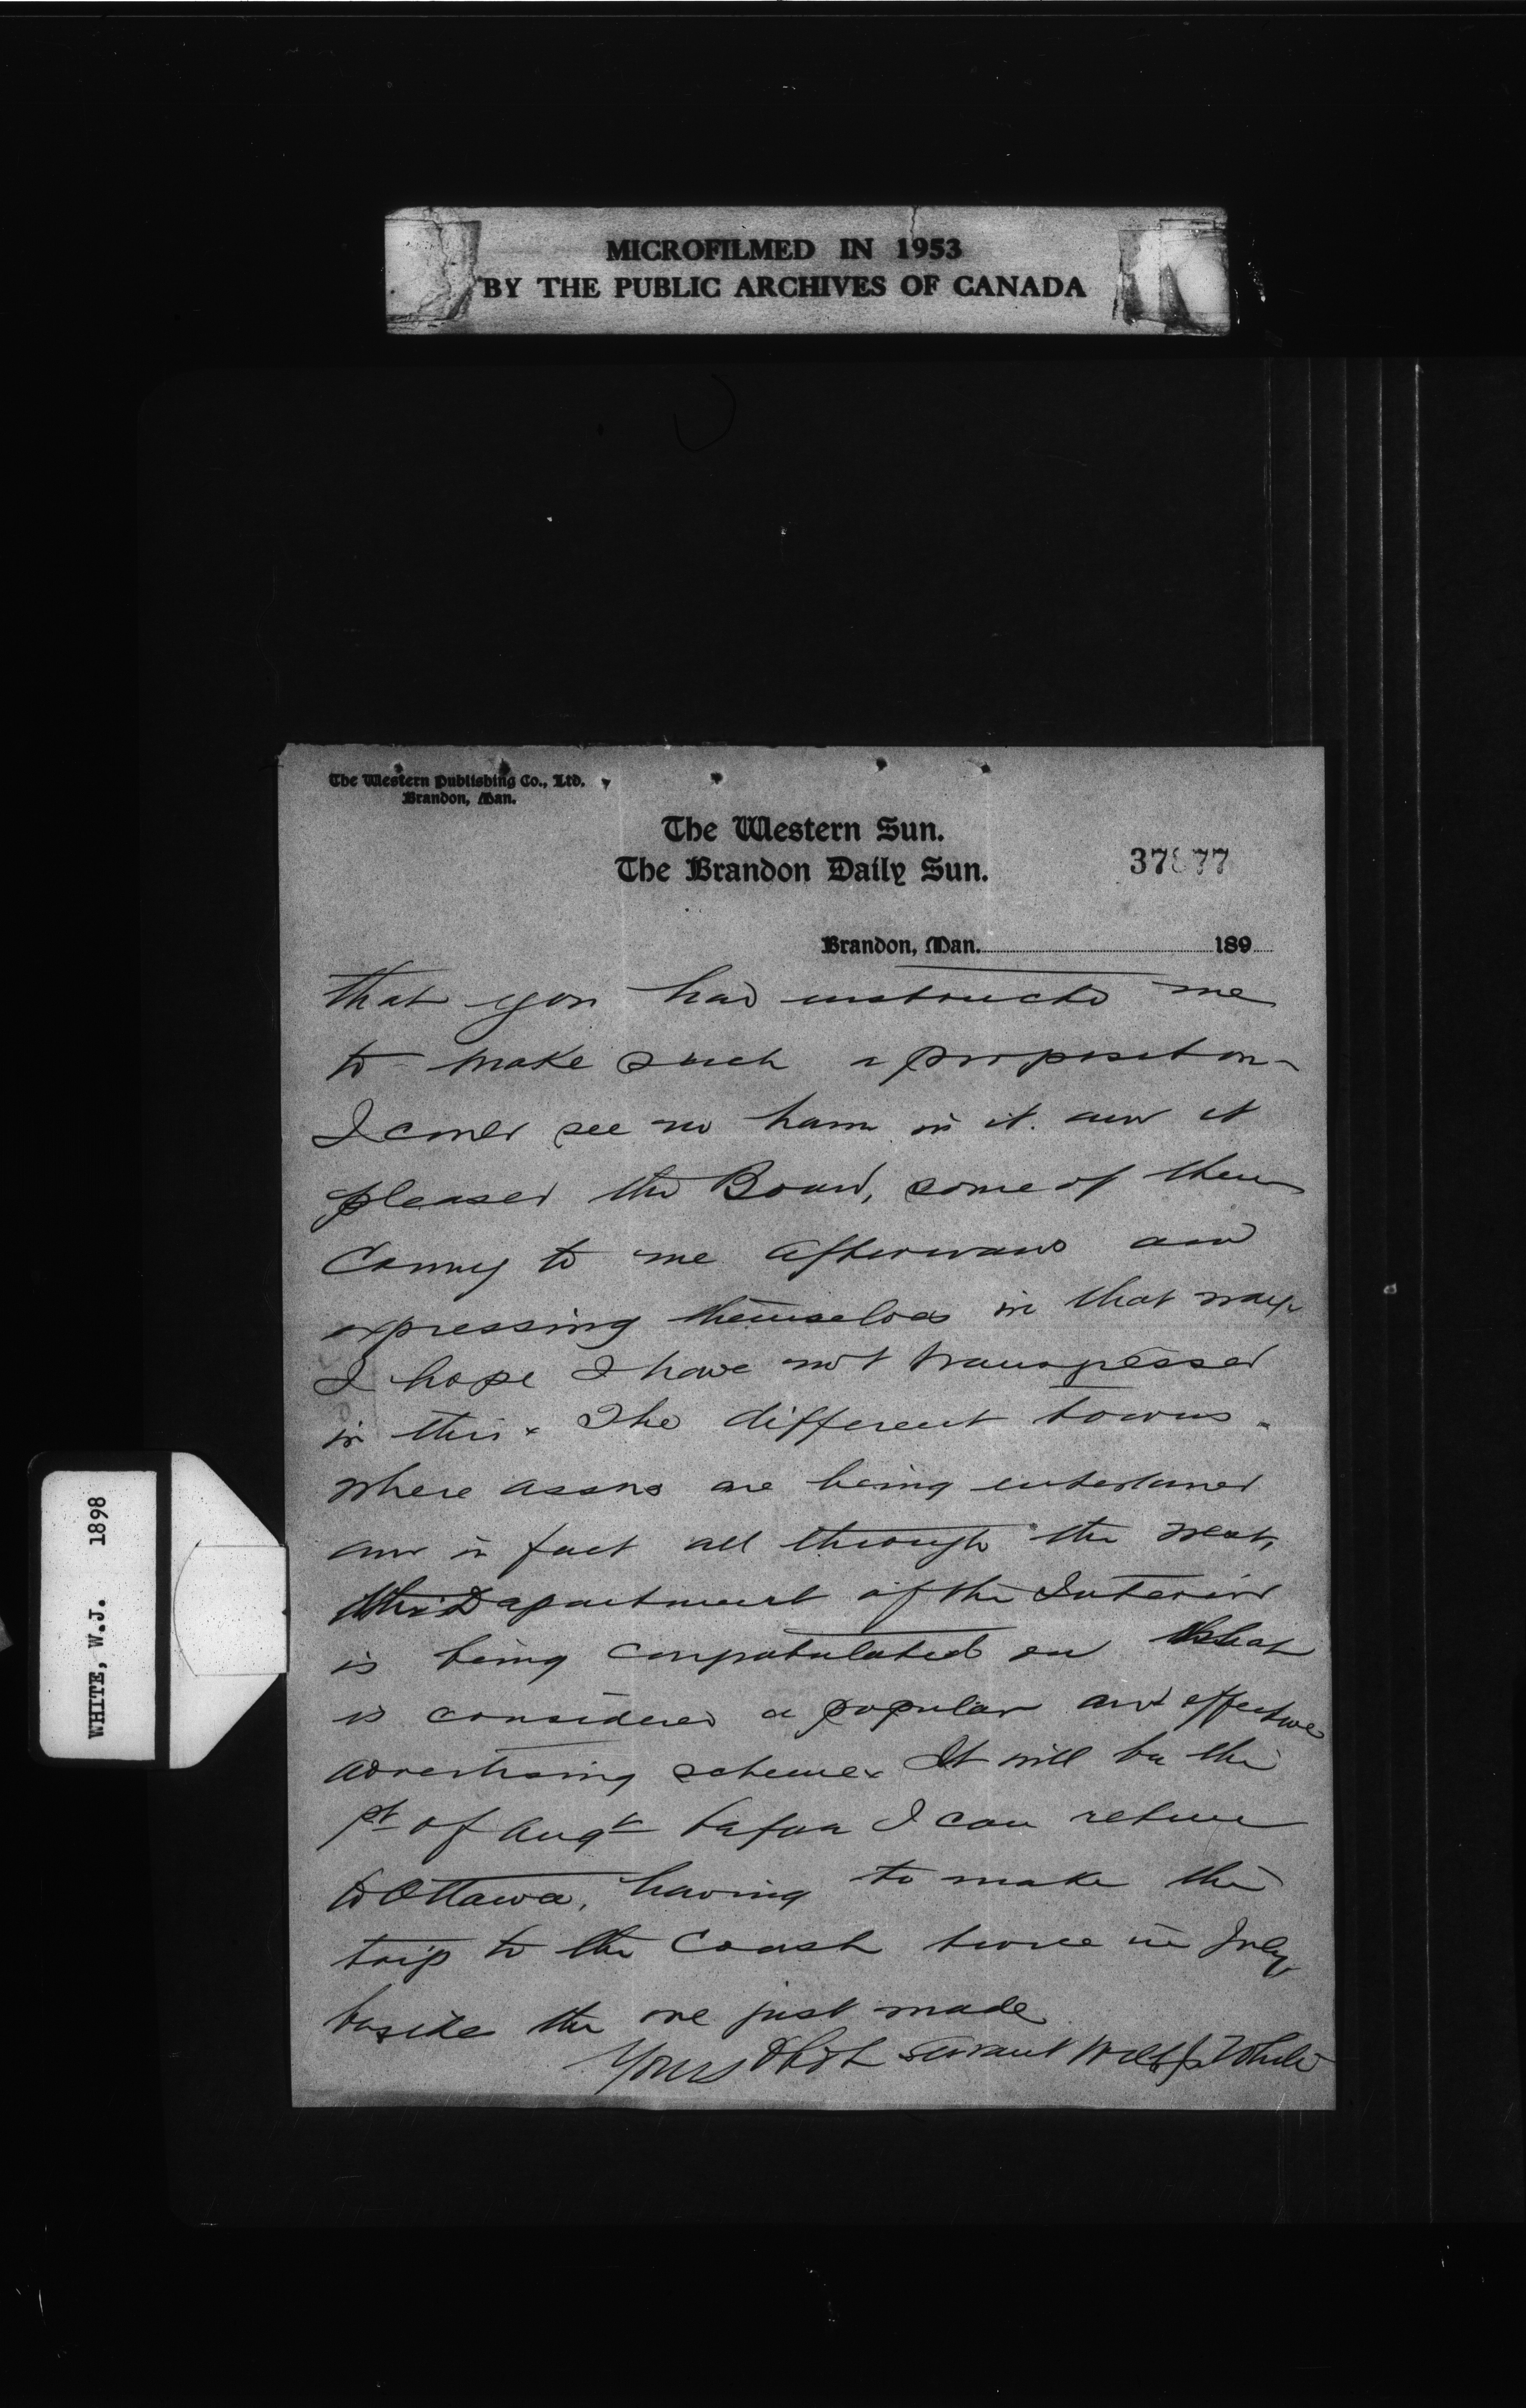 MICROFILMED IN 1953
BY THE PUBLIC ARCHIVES OF CANADA
The Western Publishing Co., Ltd.
Brandon, Man.
The Western Sun.
The Brandon Daily Sun.
37877
Brandon, Man. 189
that you had instructed me
to make such a proposition
I could see no harm in it. and it
pleased the Board, some of them
Coming to me afterwards and
expressing themselves in that way
I hope I have not transgressed
in this. The different towns
where assns are being entertained
and in fact all through the west,
the Department of the Interior
is being congratulated on what
is considered a popular and effective
advertising scheme. It will be the
1st of Augt before I can return
to Ottawa, having to make the
trip to the Coast twice in July,
beside the one just made
Yours Obdt Servant W J White
WHITE, W.J. 1898